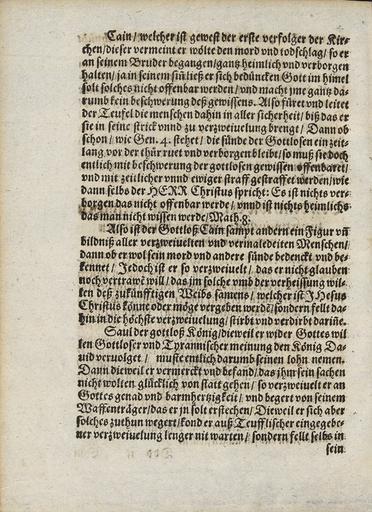 Cain/ welcher ist gewest der erste verfolger der Kir⸗
chen/ dieser vermeint er wölte den mord vnd todschlag/ so er
an seinem Bruder begangen/ gantz heimlich vnd verborgen
halten/ ja in seinem siñ ließ er sich bedüncken Gott im himel
solt solches nicht offenbar werden/ vnd macht jme gantz da⸗
rumb kein beschwerung deß gewissens. Also füret vnd leitet
der Teufel die menschen dahin in aller sicherheit/ biß das er
sie in seine strick vnnd zu verzweiuelung brengt/ Dann ob
schon/ wie Gen. 4. stehet/ die sünde der Gottlosen ein zeit⸗
lang vor der thür ruet vnd verborgen bleibt/ so muß sie doch
entlich mit beschwerung der gottlosen gewissen offenbaret/
vnd mit zeitlicher vnnd ewiger straff gestraffet werden/ wie
dann selbs der HERR Christus spricht: Es ist nichts ver⸗
borgen das nicht offenbar werde/ vnnd ist nichts heimlichs
das man nicht wissen werde/ Math. 8.
Also ist der Gottloß Cain sampt andern ein Figur vñ
bildniß aller verzweiuelten vnd vermaledeiten Menschen/
dann ob er wol sein mord vnd andere sünde bedenckt vnd be⸗
kennet/ Jedoch ist er so verzweiuelt/ das er nicht glauben
noch vertrawē will/ das jm solche vmb der verheissung wil⸗
len deß zukünfftigen Weibs samens/ welcher ist JHesus
Christus könne oder möge vergeben werdē/ sondern fellt da⸗
hin in die höchste verzweiuelung/ stirbt vnd verdirbt dariñe.
Saul der gottloß König/ dieweil er wider Gottes wil
len Gottloser vnd Tyrannischer meinung den König Da⸗
uid veruolget/ muste entlich darumb seinen lohn nemen.
Dann dieweil er vermerckt vnd befand/ das jhm sein sachen
nicht wolten glücklich von statt gehen/ so verzweiuelt er an
Gottes genad vnd barmhertzigkeit/ vnd begert von seinem
Waffenträger/ das er jn solt erstechen/ Dieweil er sich aber
solches zuthun wegert/ kond er auß Teufflischer eingegebe⸗
ner verzweiuelung lenger nit warten/ sondern fellt selbs in
sein